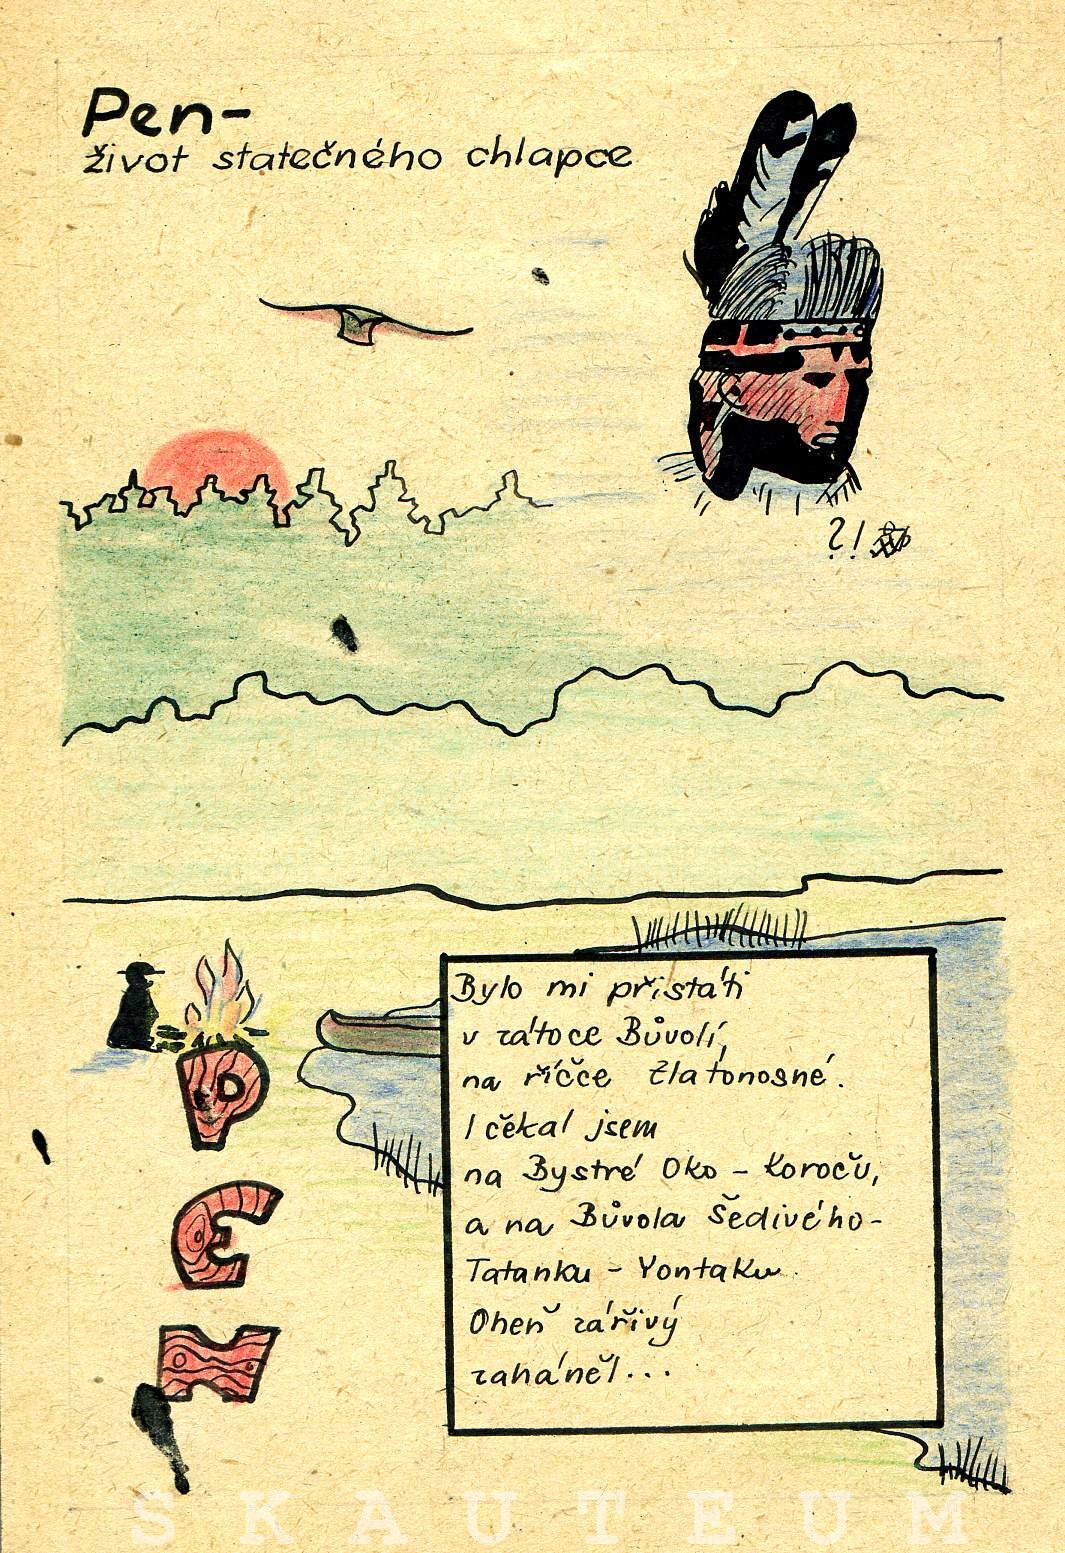 Pen-
život statečného chlapce
?!
Bylo mi přistáti
v zátoce Bůvolí,
na říčce Zlatonosné.
I čěkal jsem
na Bystré Oko - Koroču,
a na Bůvola Šedivého-
Tatanku - Yontaku.
Oheň zářivý
zaháněl...
PEN
SKAUTEUM